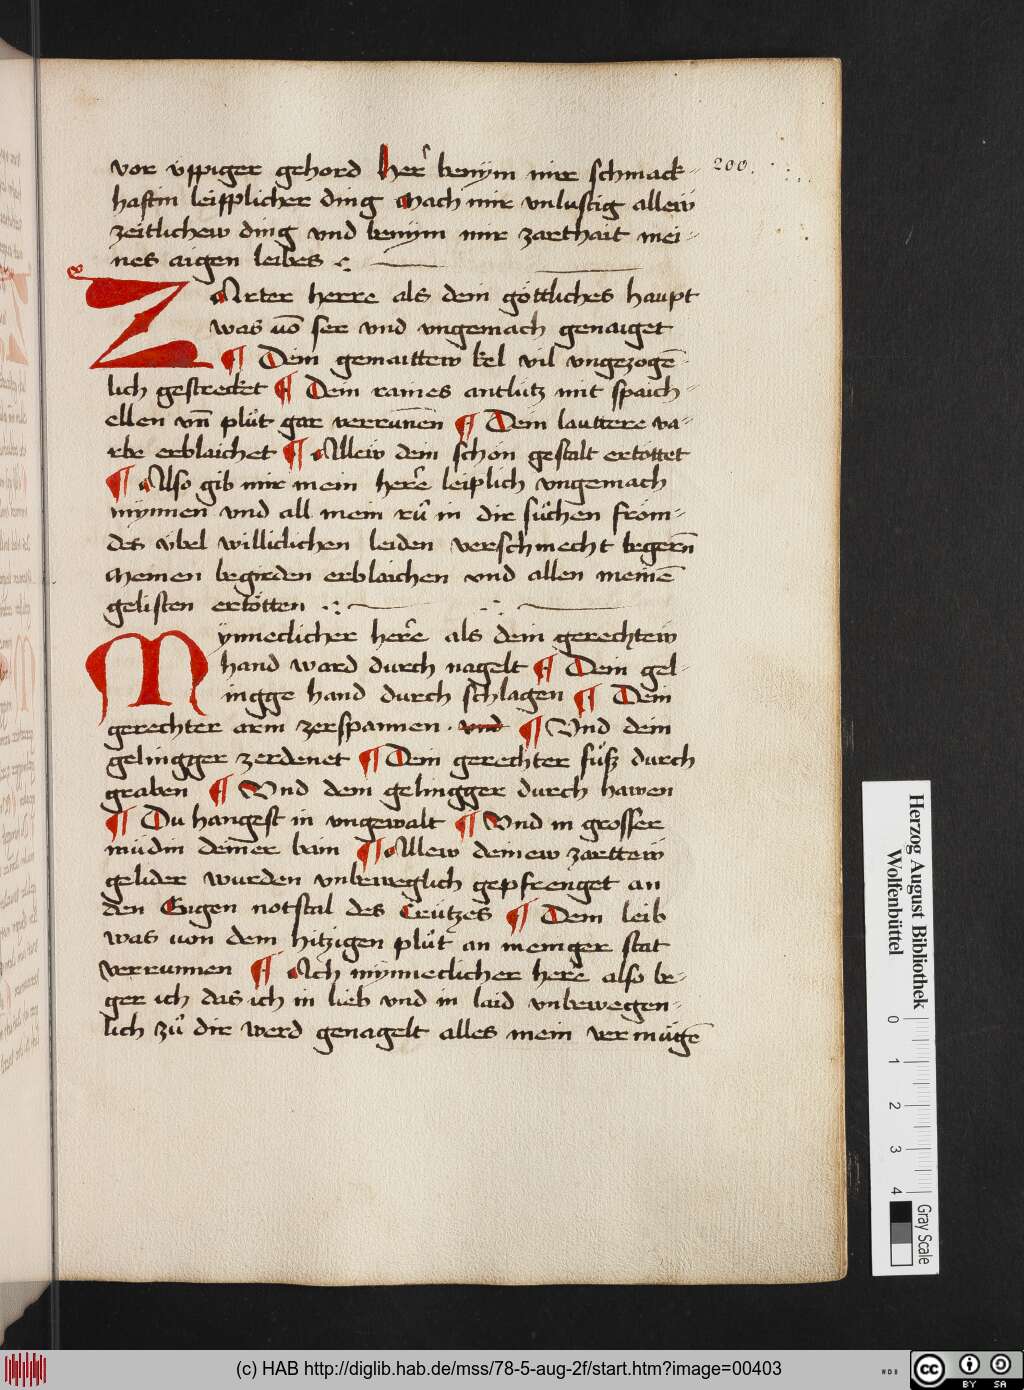 vor üppiger gehord her̃ benÿm mir schmack-
200.
haftin leipplicher ding Mach mir vnlustig allew
zeitlichew ding vnd benÿm mir zarthait mei-
nes aigen leibes
ZArter herre als dein göttliches haupt
was vō ser vnd vngemach genaiget
¶ Dein gemaittew kel vil vngezogē-
lich gestrecket ¶ Dein raines antlütz mit spaich-
ellen vn̄ plůt gar verrunēn ¶ Dein lauttere va-
rbe erblaichet ¶ Allew dein schön gestalt ertöttet
¶ Also gib mir mein her̃e leiplich vngemach
mÿnnen vnd all mein rů in dir sůchen from-
des vbel williclichen leiden verschmecht begern̄
Meinen begirden erblaichen vnd allen meinē
gelisten ertötten
Mÿnneclicher her̃e als dein gerechtew
hand ward durch nagelt ¶ Dein gel-
ingge hand durch schlagen ¶ Dein
gerechter arm zerspannen . vnd ¶ Vnd dein
gelingger zerdenet ¶ Dein gerechter fůß durch
graben ¶ Vnd dein gelingger durch hawen
¶ Du hangest in vngewalt ¶ Vnd in grosser
müdin deiner bain ¶ Allew deinew zarttew
gelider wurden vnbeweglich gepfrenget an
den Eigen notstal des Crützes ¶ Dein leib
was von dem hitzigen plůt an meniger stat
verrunnen ¶ Ach mÿnneclicher her̃e also be-
ger ich das ich in lieb vnd in laid vnbewegen-
lich zů dir werd genagelt alles mein vermügē
Herzog August Bibliothek
Wolfenbüttel
0
1
2
3
4
Gray Scale
(c) HAB http://diglib.hab.de/mss/78-5-aug-2f/start.htm?image=00403
WDB
cc
BY SA